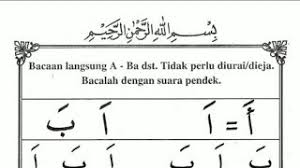 بِسْمِ اللهِ الرَّحْمٰنِ الرَّحِيْمِ
Bacaan langsung A - Ba dst. Tidak perlu diurai/dieja.
Bacalah dengan suara pendek.
أَ = اَ اَ بَ
بَ اَ بَ بَ اَ بَ